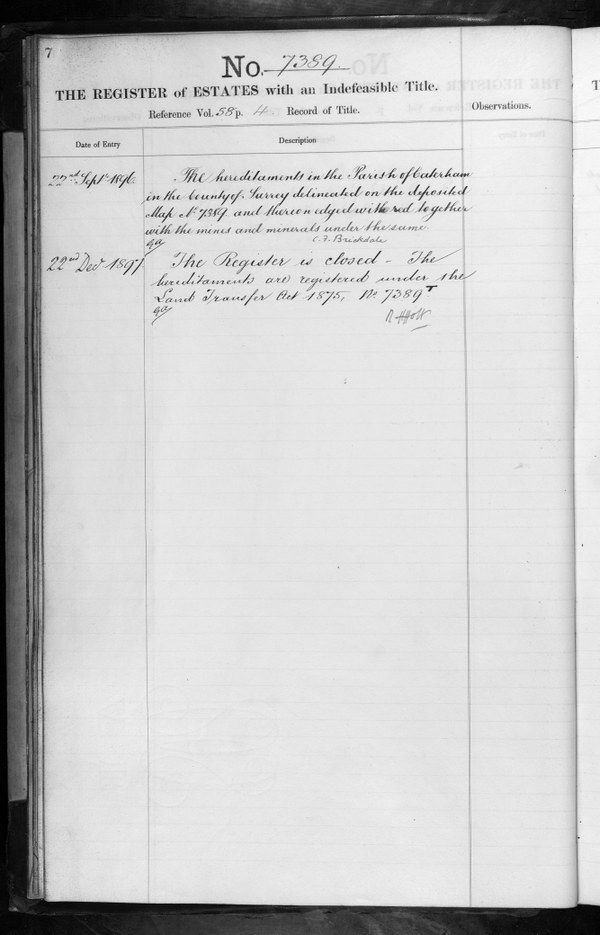 7
No. 7389.
THE REGISTER of ESTATES with an Indefeasible Title.
Reference Vol. 58 p. 4. Record of Title.
Observations.
Date of Entry
Description
22nd Septr 1896.
The hereditaments in the Parish of Caterham
in the County of Surrey delineated on the deposited
Map No 7389 and thereon edged with red together
with the mines and minerals under the same
C. F. Brickdale
22nd Decr 1897
The Register is closed - The
hereditaments are registered under the
Land Transfer Act 1875, No. 7389T